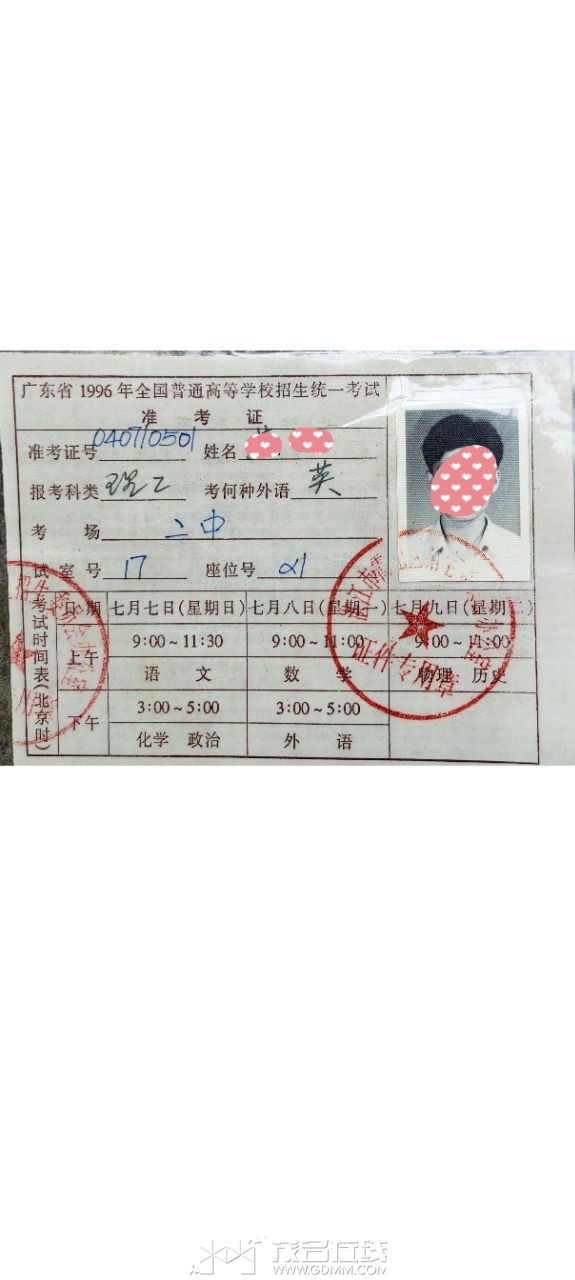 广东省1996年全国普通高等学校招生统一考试
准 考 证
准考证号 040710501 姓名
报考科类 理工 考何种外语 英
考 场 二中
试室号 17 座位号 21
考试时间表(北京时)
日期 七月七日(星期日) 七月八日(星期一) 七月九日(星期二)
上午 9:00~11:30 9:00~11:00 9:00~11:00
语 文 数 学 物理 历史
下午 3:00~5:00 3:00~5:00
化学 政治 外 语
证件专用章
茂名在线
WWW.GDMM.COM